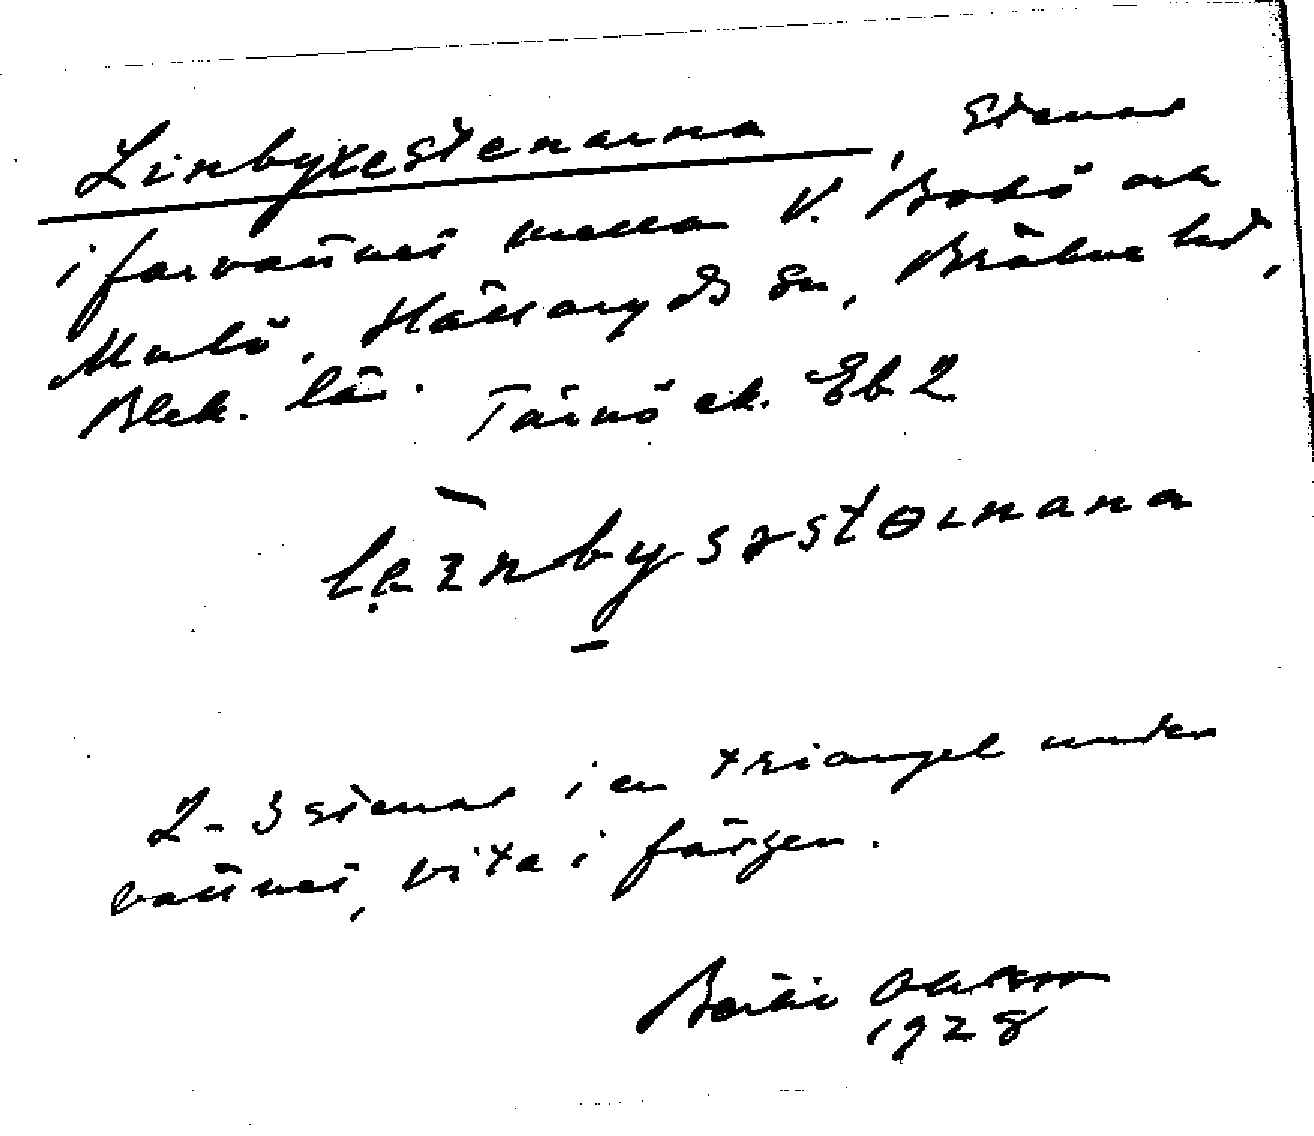 Linbyxestenarna, Stenar
i farvattnet mellan V. Bokö och
Mulö, Hällaryds sn, Bräkne hd,
Blek. län. Tärnö ek. Eb 2
2-3 stenar i en triangel under
vattnet, vita i färgen.
Bertil Ohlsson
1928